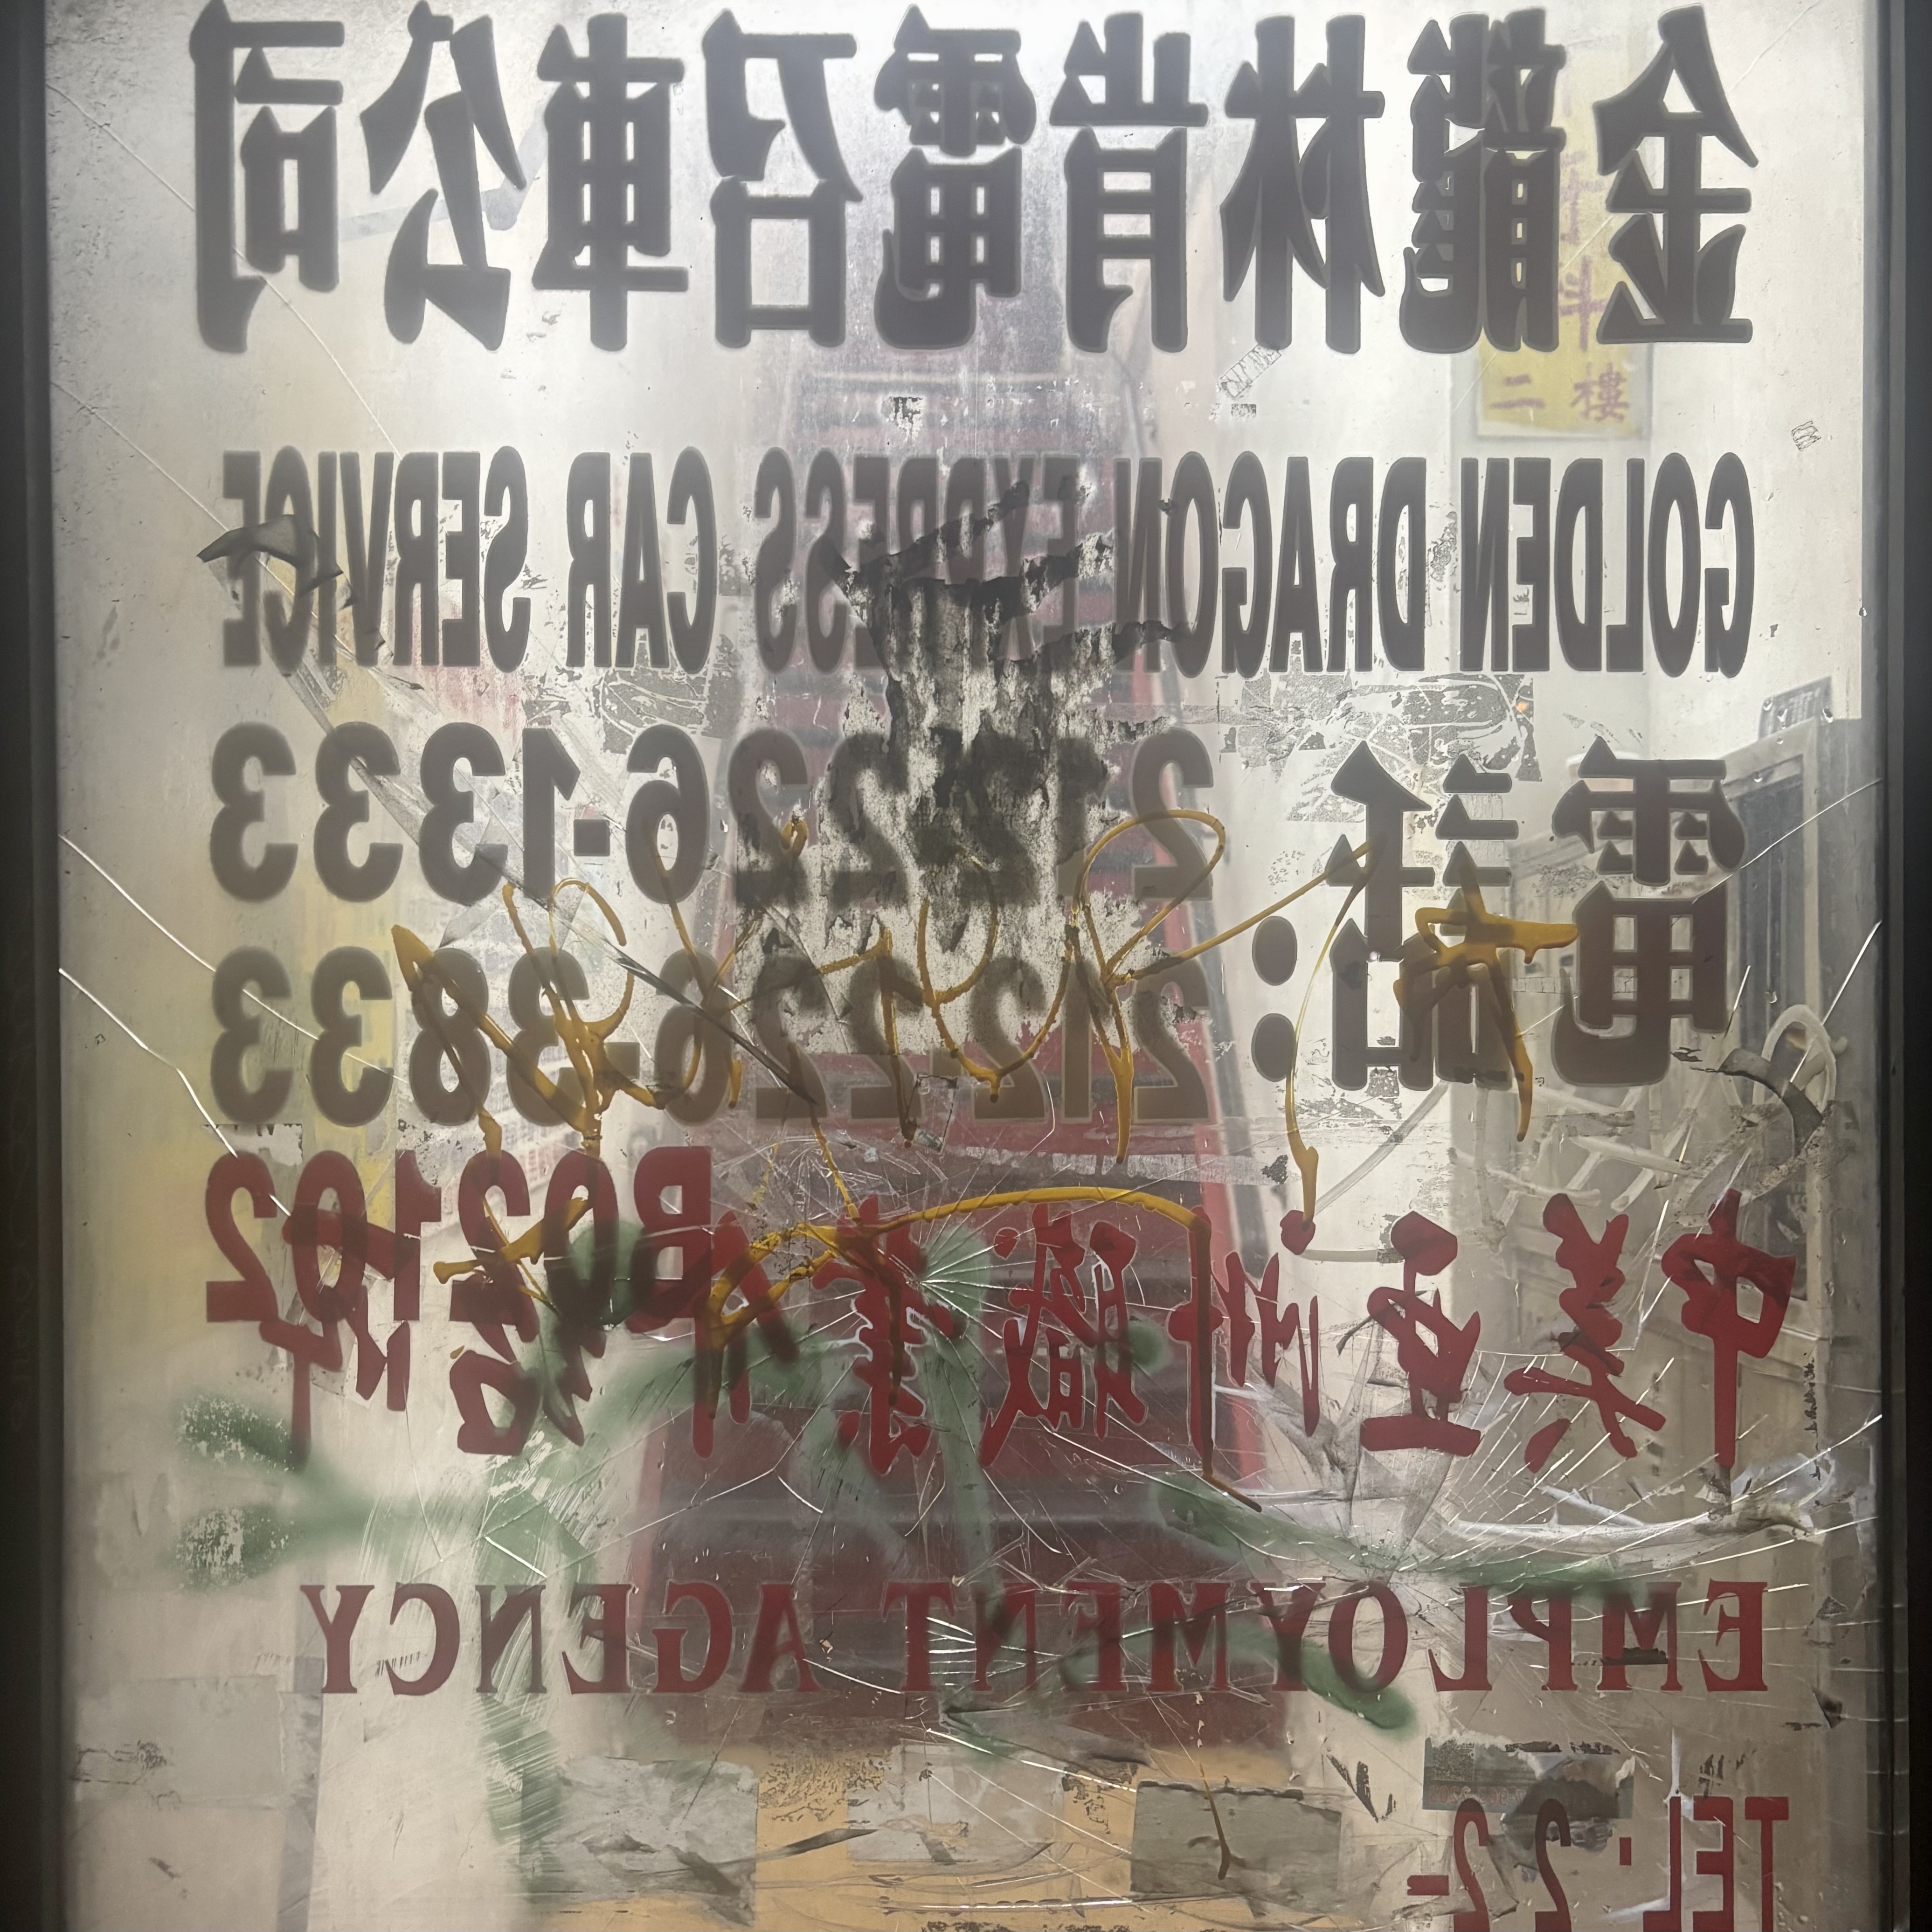 金龍林肯電召車公司
GOLDEN DRAGON EXPRESS CAR SERVICE
電話:
212-226-1333
212-226-3833
B02102
中美亞洲職業介紹所
EMPLOYMENT AGENCY
TEL·22-
二樓